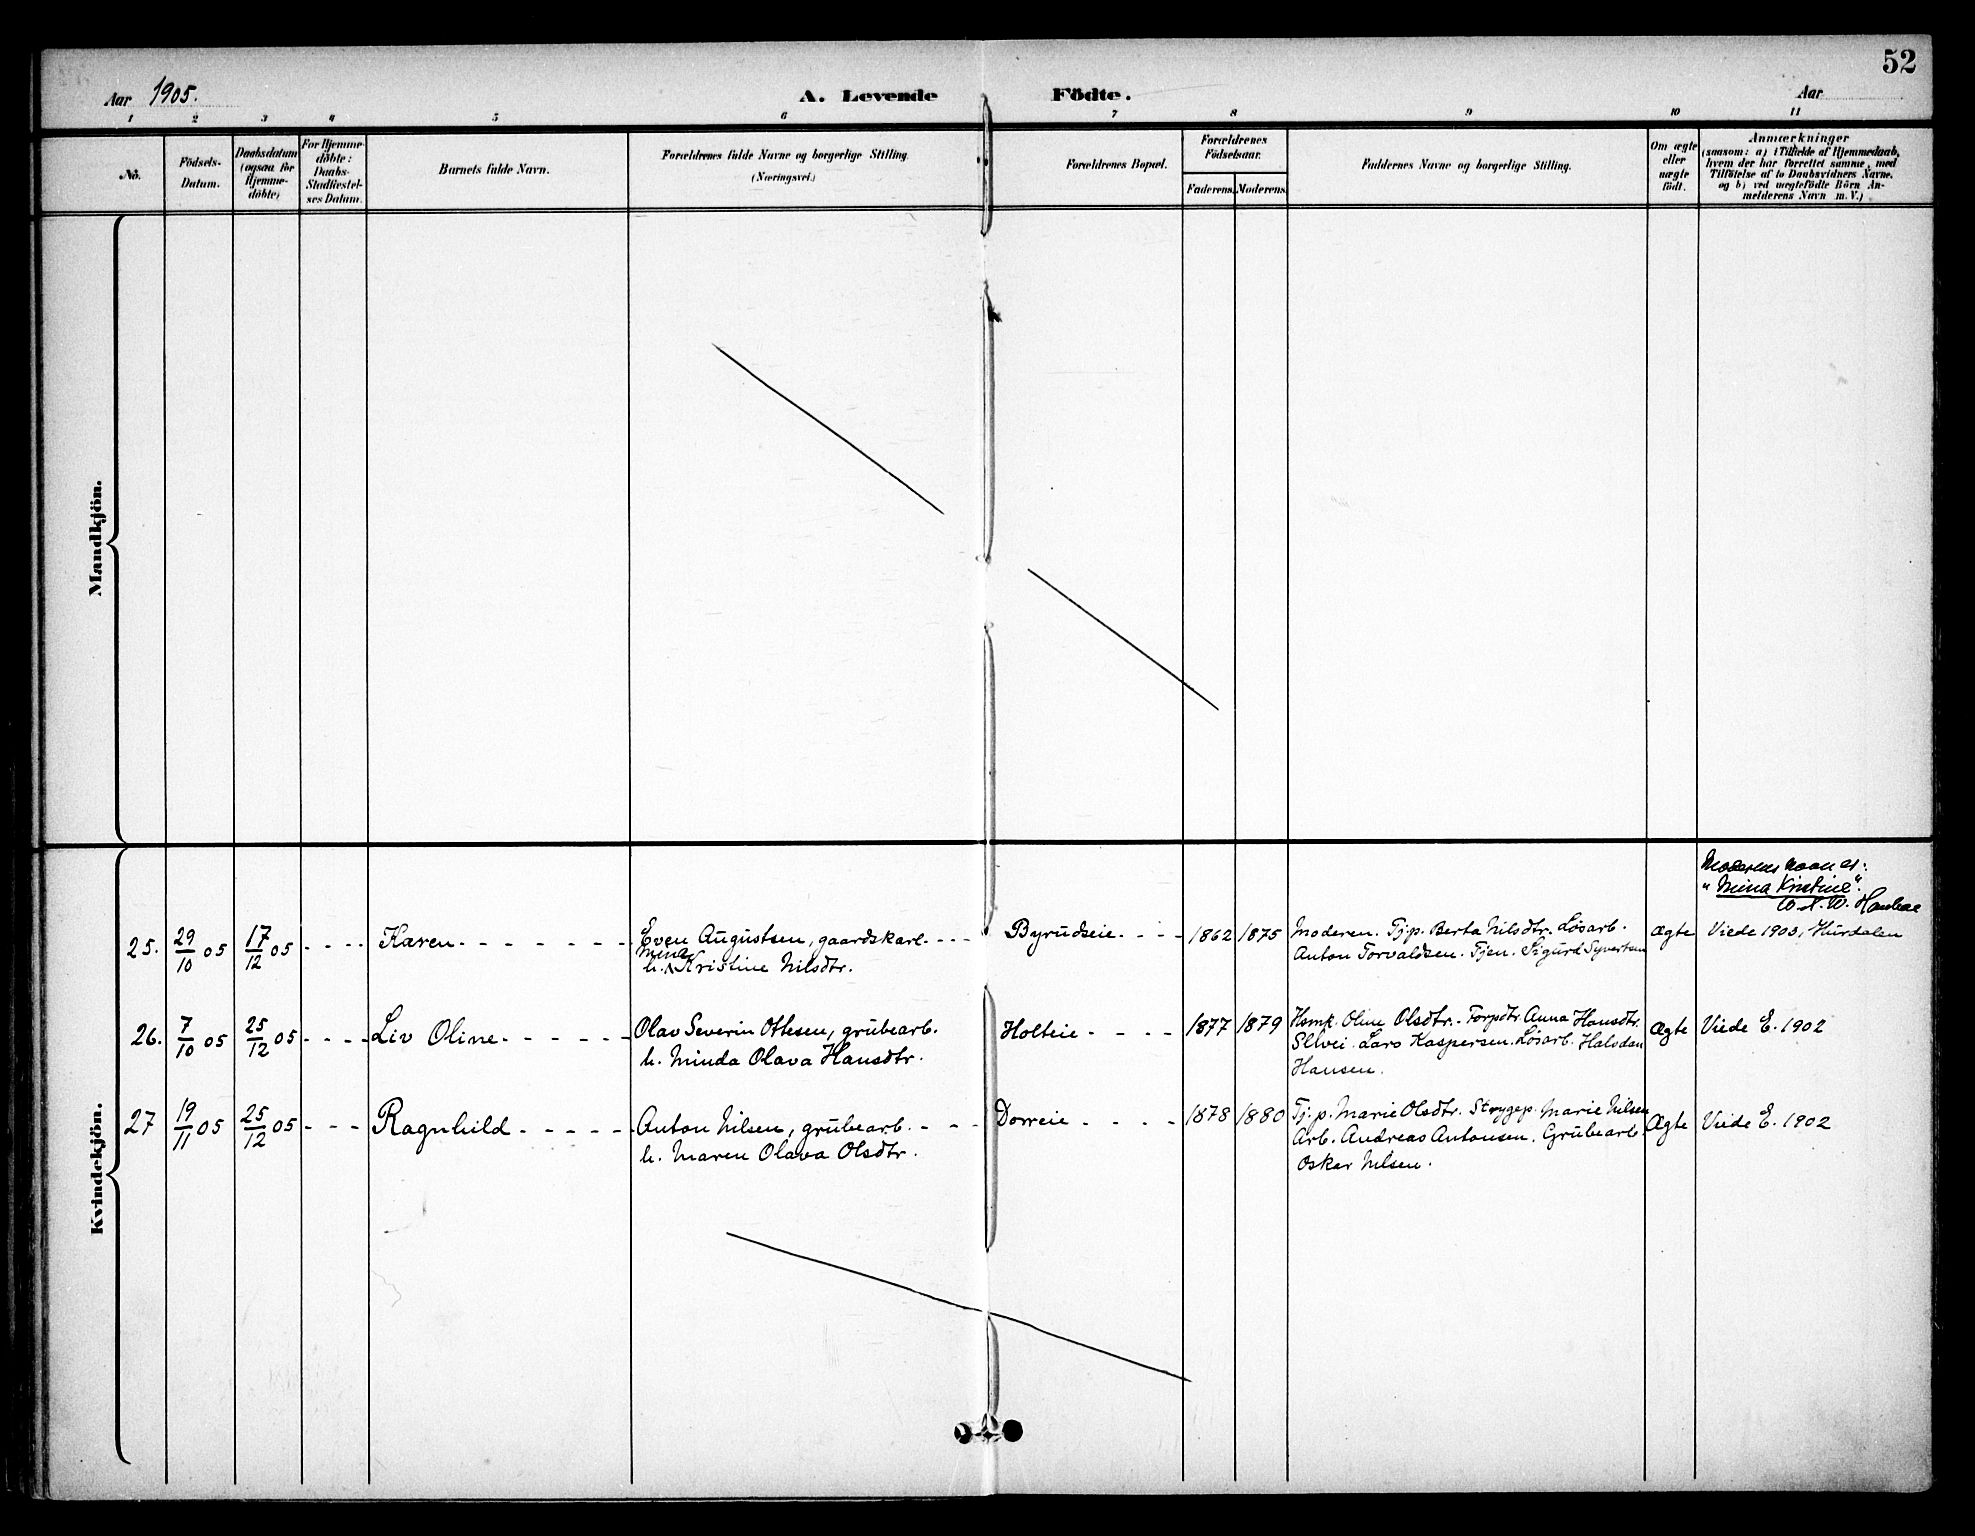 52
Aar 1905. A. Levende Födte. Aar
1 2 3 4 5 6 7 8 9 10 11
No.
Födsels-
Datum.
Daabsdatum
(ogsaa for
Hjemme-
döbte)
For Hjemme-
döbte:
Daabs-
Stadfæstel-
ses Datum.
Barnets fulde Navn.
Forældrenes fulde Navne og borgerlige Stilling
(Næringsvei.)
Forældrenes Bopæl.
Forældrenes
Födselsaar.
Faderens. Moderens
Faddernes Navne og borgerlige Stilling.
Om ægte
eller
uægte
födt.
Anmærkninger
(saasom: a) i Tilfælde af Hjemmedaab,
hvem der har forrettet samme, med
Tilföielse af to Daabsvidners Navne.
og b) ved uægtefödte Börn An-
melderens Navn m.V.)
Mandkjön.
Kvindekjön.
25. 29/10 05 17/12 05 - - - - Karen - - - - - - -
Even Augustsen, gaardskarl - - -
Mina
h. Kristine Nilsdtr.
Byrudseie - - - - 1862 1875
Moderen. Tjp. Berta Nilsdtr. Lösarb.
Anton Torvaldsen. Tjen. Sigurd Syvertsen
Ægte
Moderens navn er:
"Mina Kristine".
Viede 1903, Hurdalen
26. 7/10 05 25/12 05 - - - - Liv Oline - - - - - -
Olav Severin Ottesen, grubearb.
h. Minda Olava Hansdtr.
Holteie - - - - 1877 1879
Hsmk. Oline Olsdtr. - Torpdtr Anna Hansdtr.
Slvei. Lars Kaspersen. Lösarb. Halvdan
Hansen.
Ægte Viede E. 1902
27 19/11 05 25/12 05 - - - Ragnhild - - - - -
Anton Nilsen, grubearb. - - -
h. Maren Olava Olsdtr.
Dorreie - - - - 1878 1880
Tj.p. Marie Olsdtr. Strygep. Marie Nilsen
Arb. Andreas Antonsen. Grubearb.
Oskar Nilsen.
Ægte Viede E. 1902